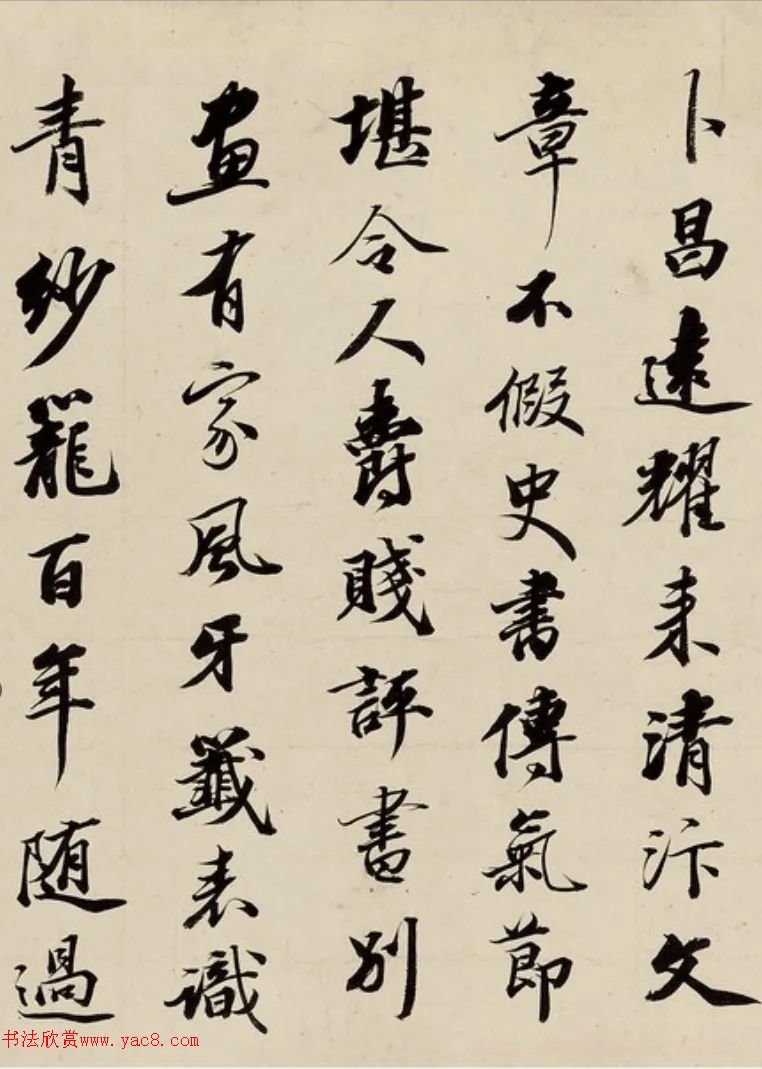 卜昌遠耀来清汴文
章不假史書傳氣節
堪令人爵賤評書別
畫有家風牙籤表識
青紗籠百年随過
书法欣赏www.yac8.com